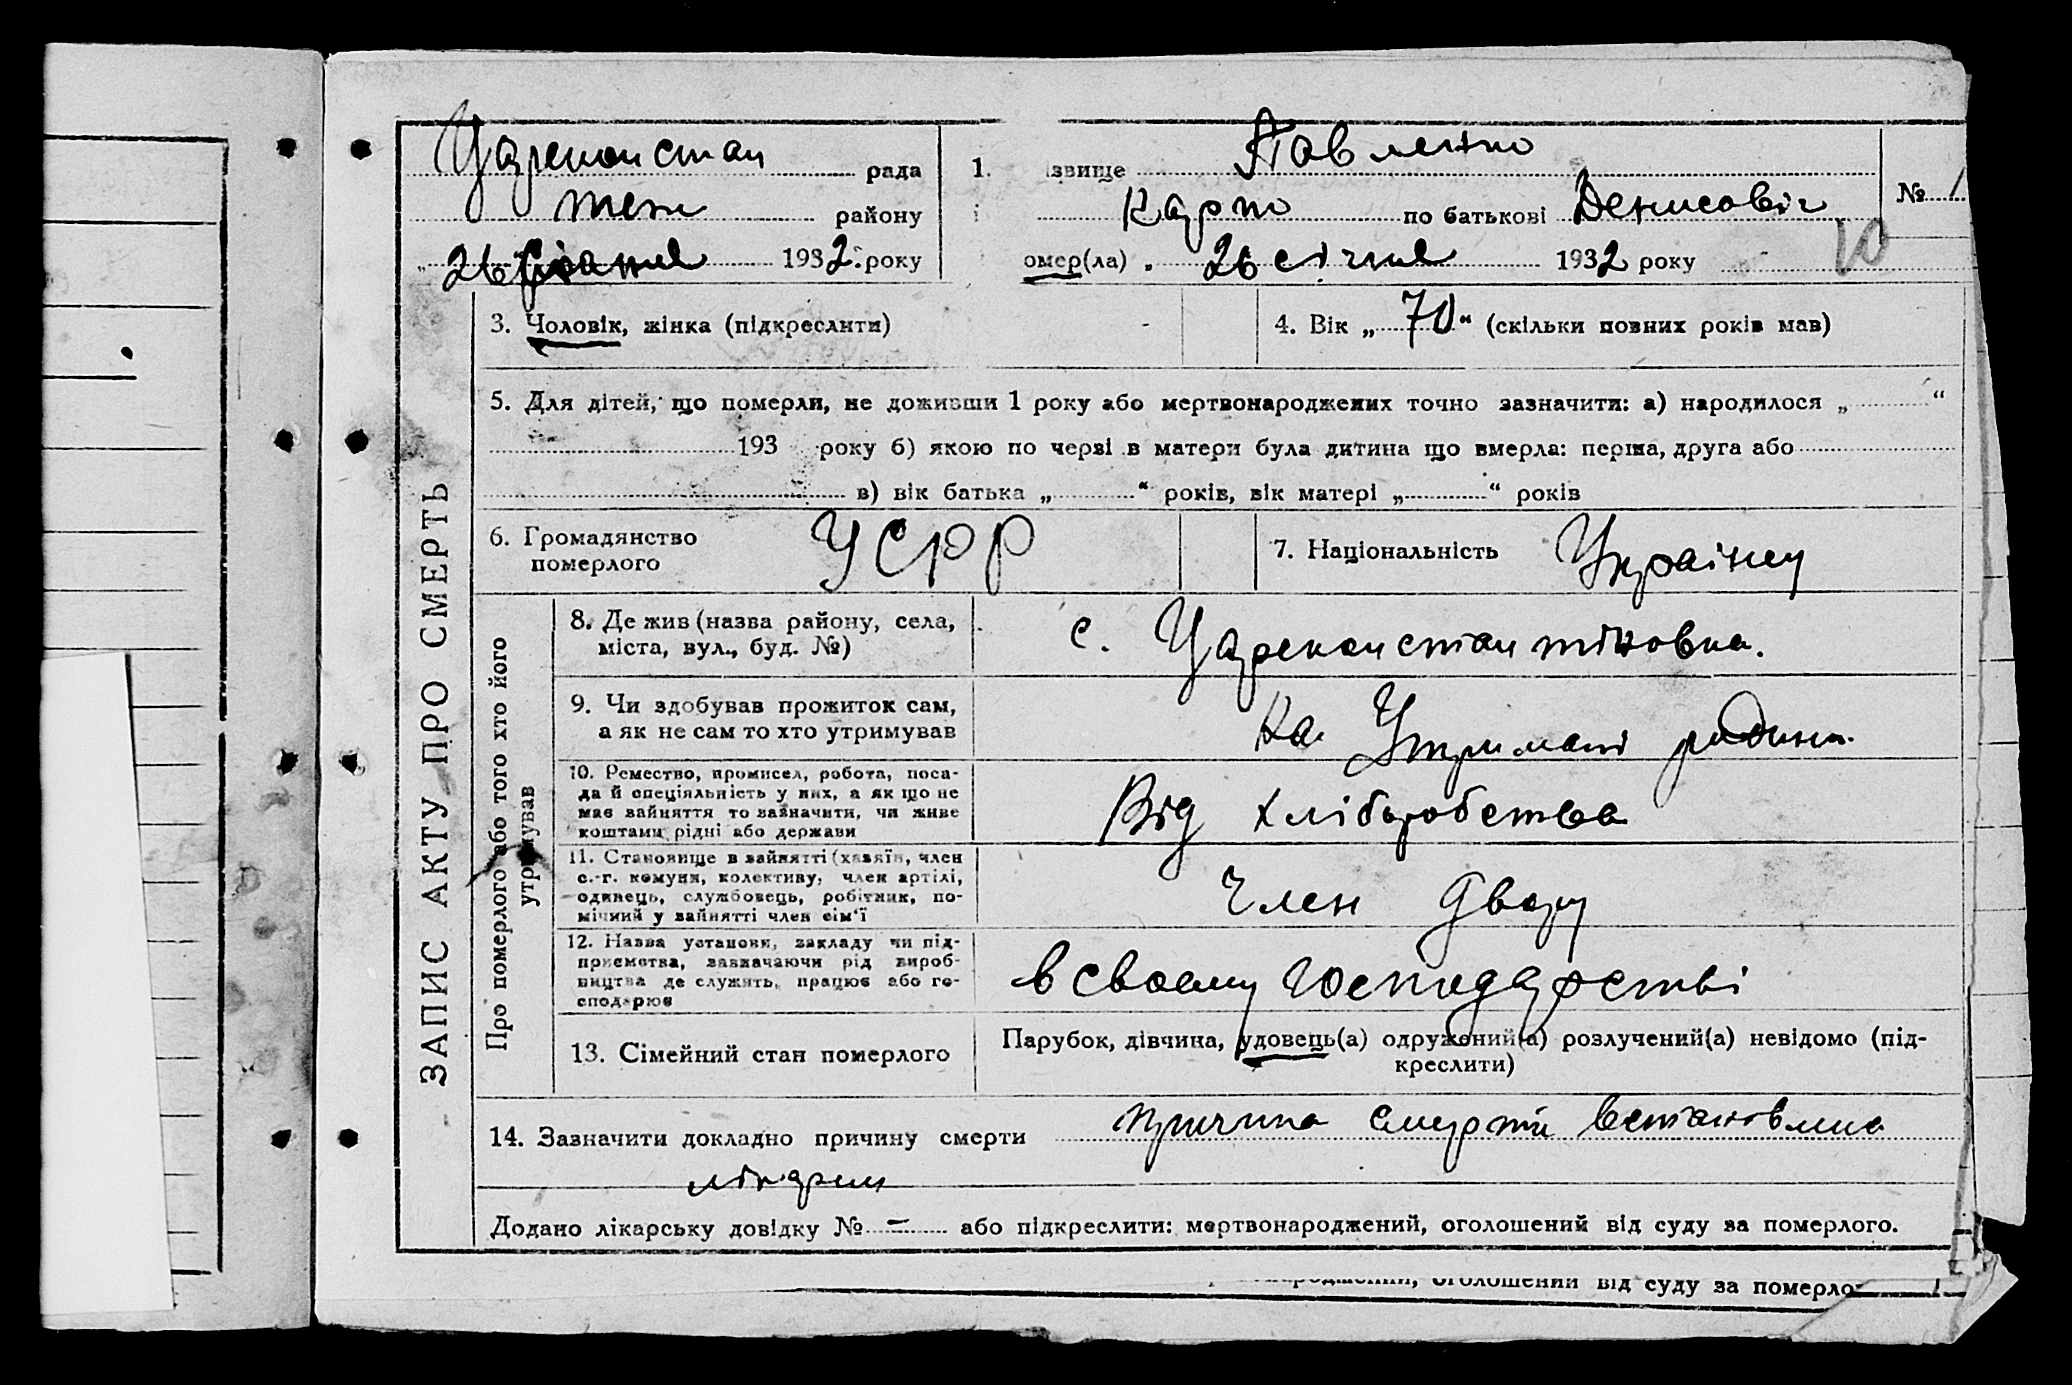 Цареконстан рада
теж району
„26 Січня 1932 року
1. ізвище Павленко
Карпо по батькові Денисовіч
№ 1
10
омер(ла) „ 26 січня 1932 року
3. Чоловік, жінка (підкреслити)
4. Вік „70“ (скільки повних років мав)
5. Для дітей, що померли, не доживши 1 року або мертвонароджених точно зазначити: а) народилося „ “
193 року б) якою по черзі в матери була дитина що вмерла: перша, друга або
в) вік батька „ “ років, вік матері „ “ років
6. Громадянство
померлого
УСРР
7. Національність Українец
ЗАПИС АКТУ ПРО СМЕРТЬ
Про померлого або того хто його
утримував
8. Де жив (назва району, села,
міста, вул., буд. №)
с. Цареконстантіновка.
9. Чи здобував прожиток сам,
а як не сам то хто утримував
На Утримані родини
10. Ремество, промисел, робота, поса-
да й спеціяльність у них, а як що не
має зайняття то зазначити, чи живе
коштами рідні або держави
Від хліборобства
11. Становище в зайнятті (хазяїн, член
с.-г. комуни, колективу, член артілі,
одинець, службовець, робітник, по-
мічний у зайнятті член сім'ї
Член двору
12. Назва установи, закладу чи під-
приємства, зазначаючи рід вироб-
ництва де служить, працює або го-
сподарює
в своему господарстві
13. Сімейний стан померлого
Парубок, дівчина, удовець(а) одружений(а) розлучений(а) невідомо (під-
креслити)
14. Зазначити докладно причину смерти причина смерти встановлена
лікарем
Додано лікарську довідку № – або підкреслити: мертвонароджений, оголошений від суду за померлого.
оголошений від суду за померло